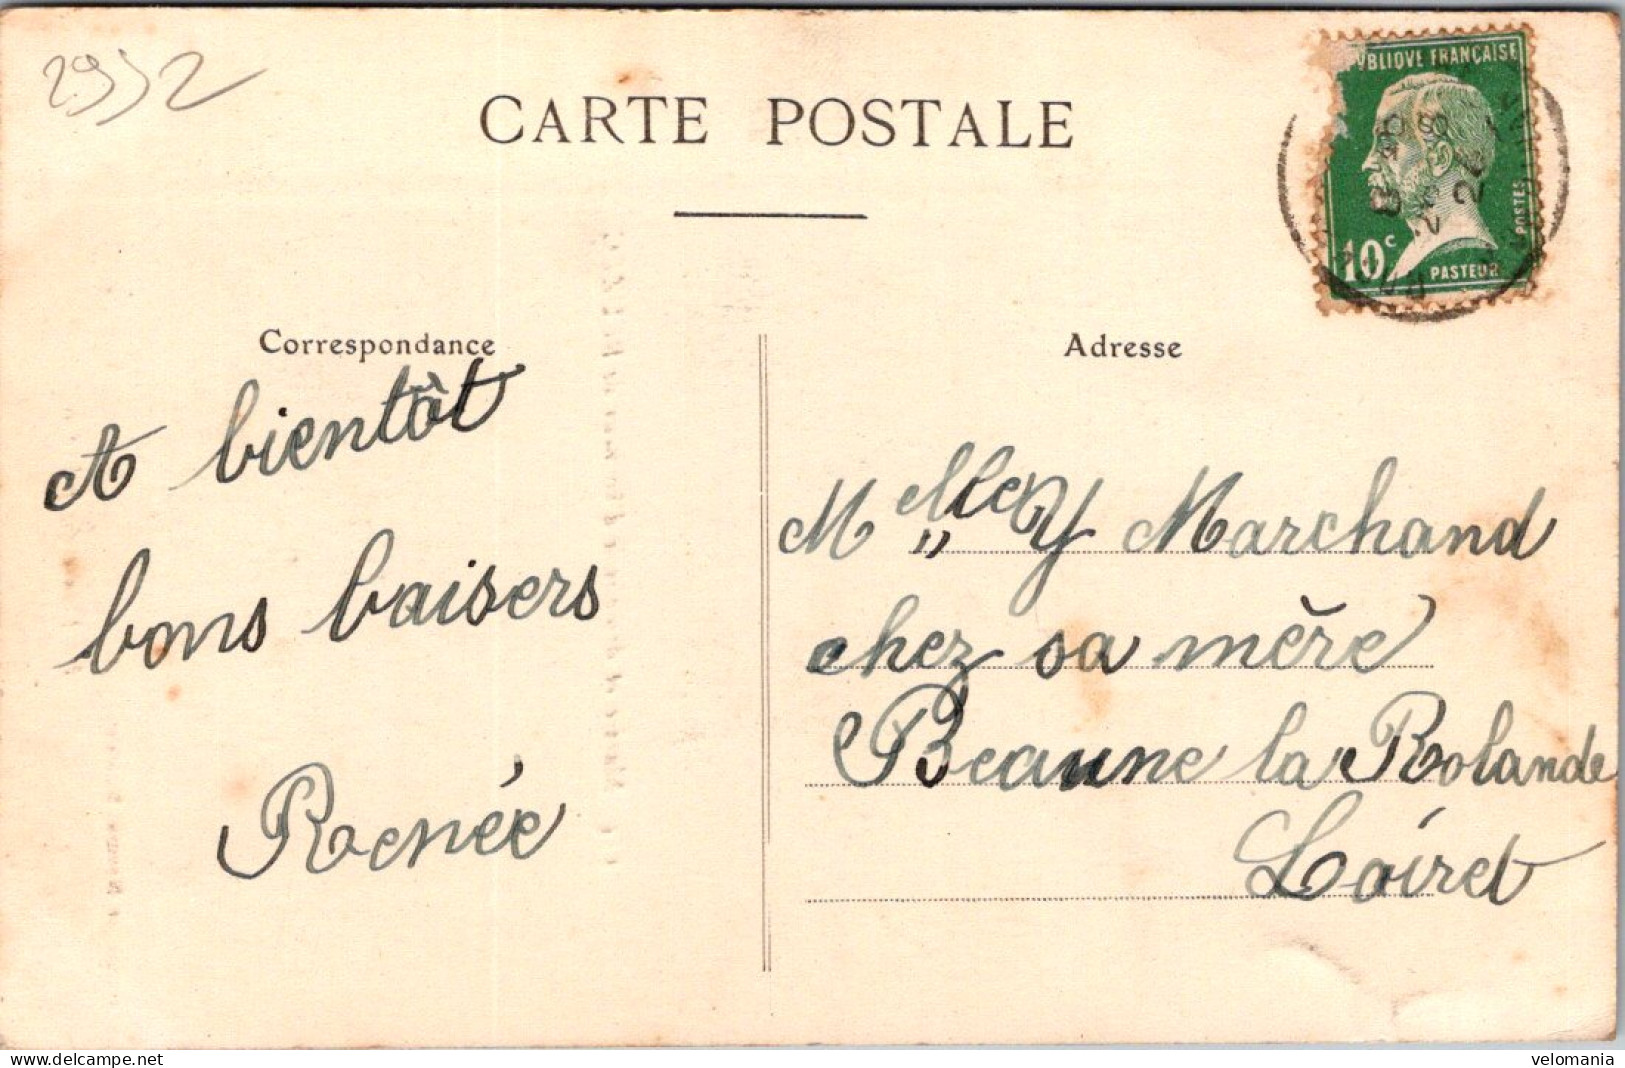 29552
CARTE POSTALE
PVBLIQVE FRANÇAISE
10c
POSTES
PASTEUR
Correspondance
Adresse
A bientôt
bons baisers
Renée
Mlle Y Marchand
chez sa mère
Beaune la Rolande
Loiret
delcampe.net
velomania